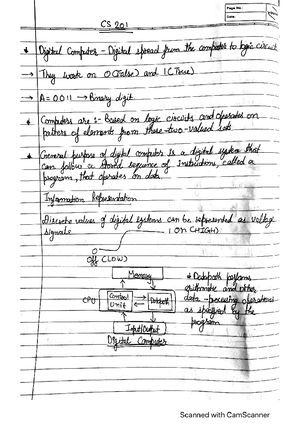 Page No.:
Date:
CS 201
* Digital Computer - Digital spread from the computer to logic circuit
→ They work on 0 (False) and 1 (True)
→ A = 0011 → Binary digit
* Computers are :- Based on logic circuits and operates on
patters of elements from these two-valued sets
* General purpose of digital computer is a digital system that
can follow a stored sequence of instructions, called a
program, that operates on data.
Information Representation
Discrete values of digital systems can be represented as voltage
signals
1 ON (HIGH)
0
Off (LOW)
Memory
CPU
Control
Unit
Datapath
Input/Output
Digital Computer
* Datapath performs
arithmetic and other
data-processing operations
as specified by the
program
Scanned with CamScanner